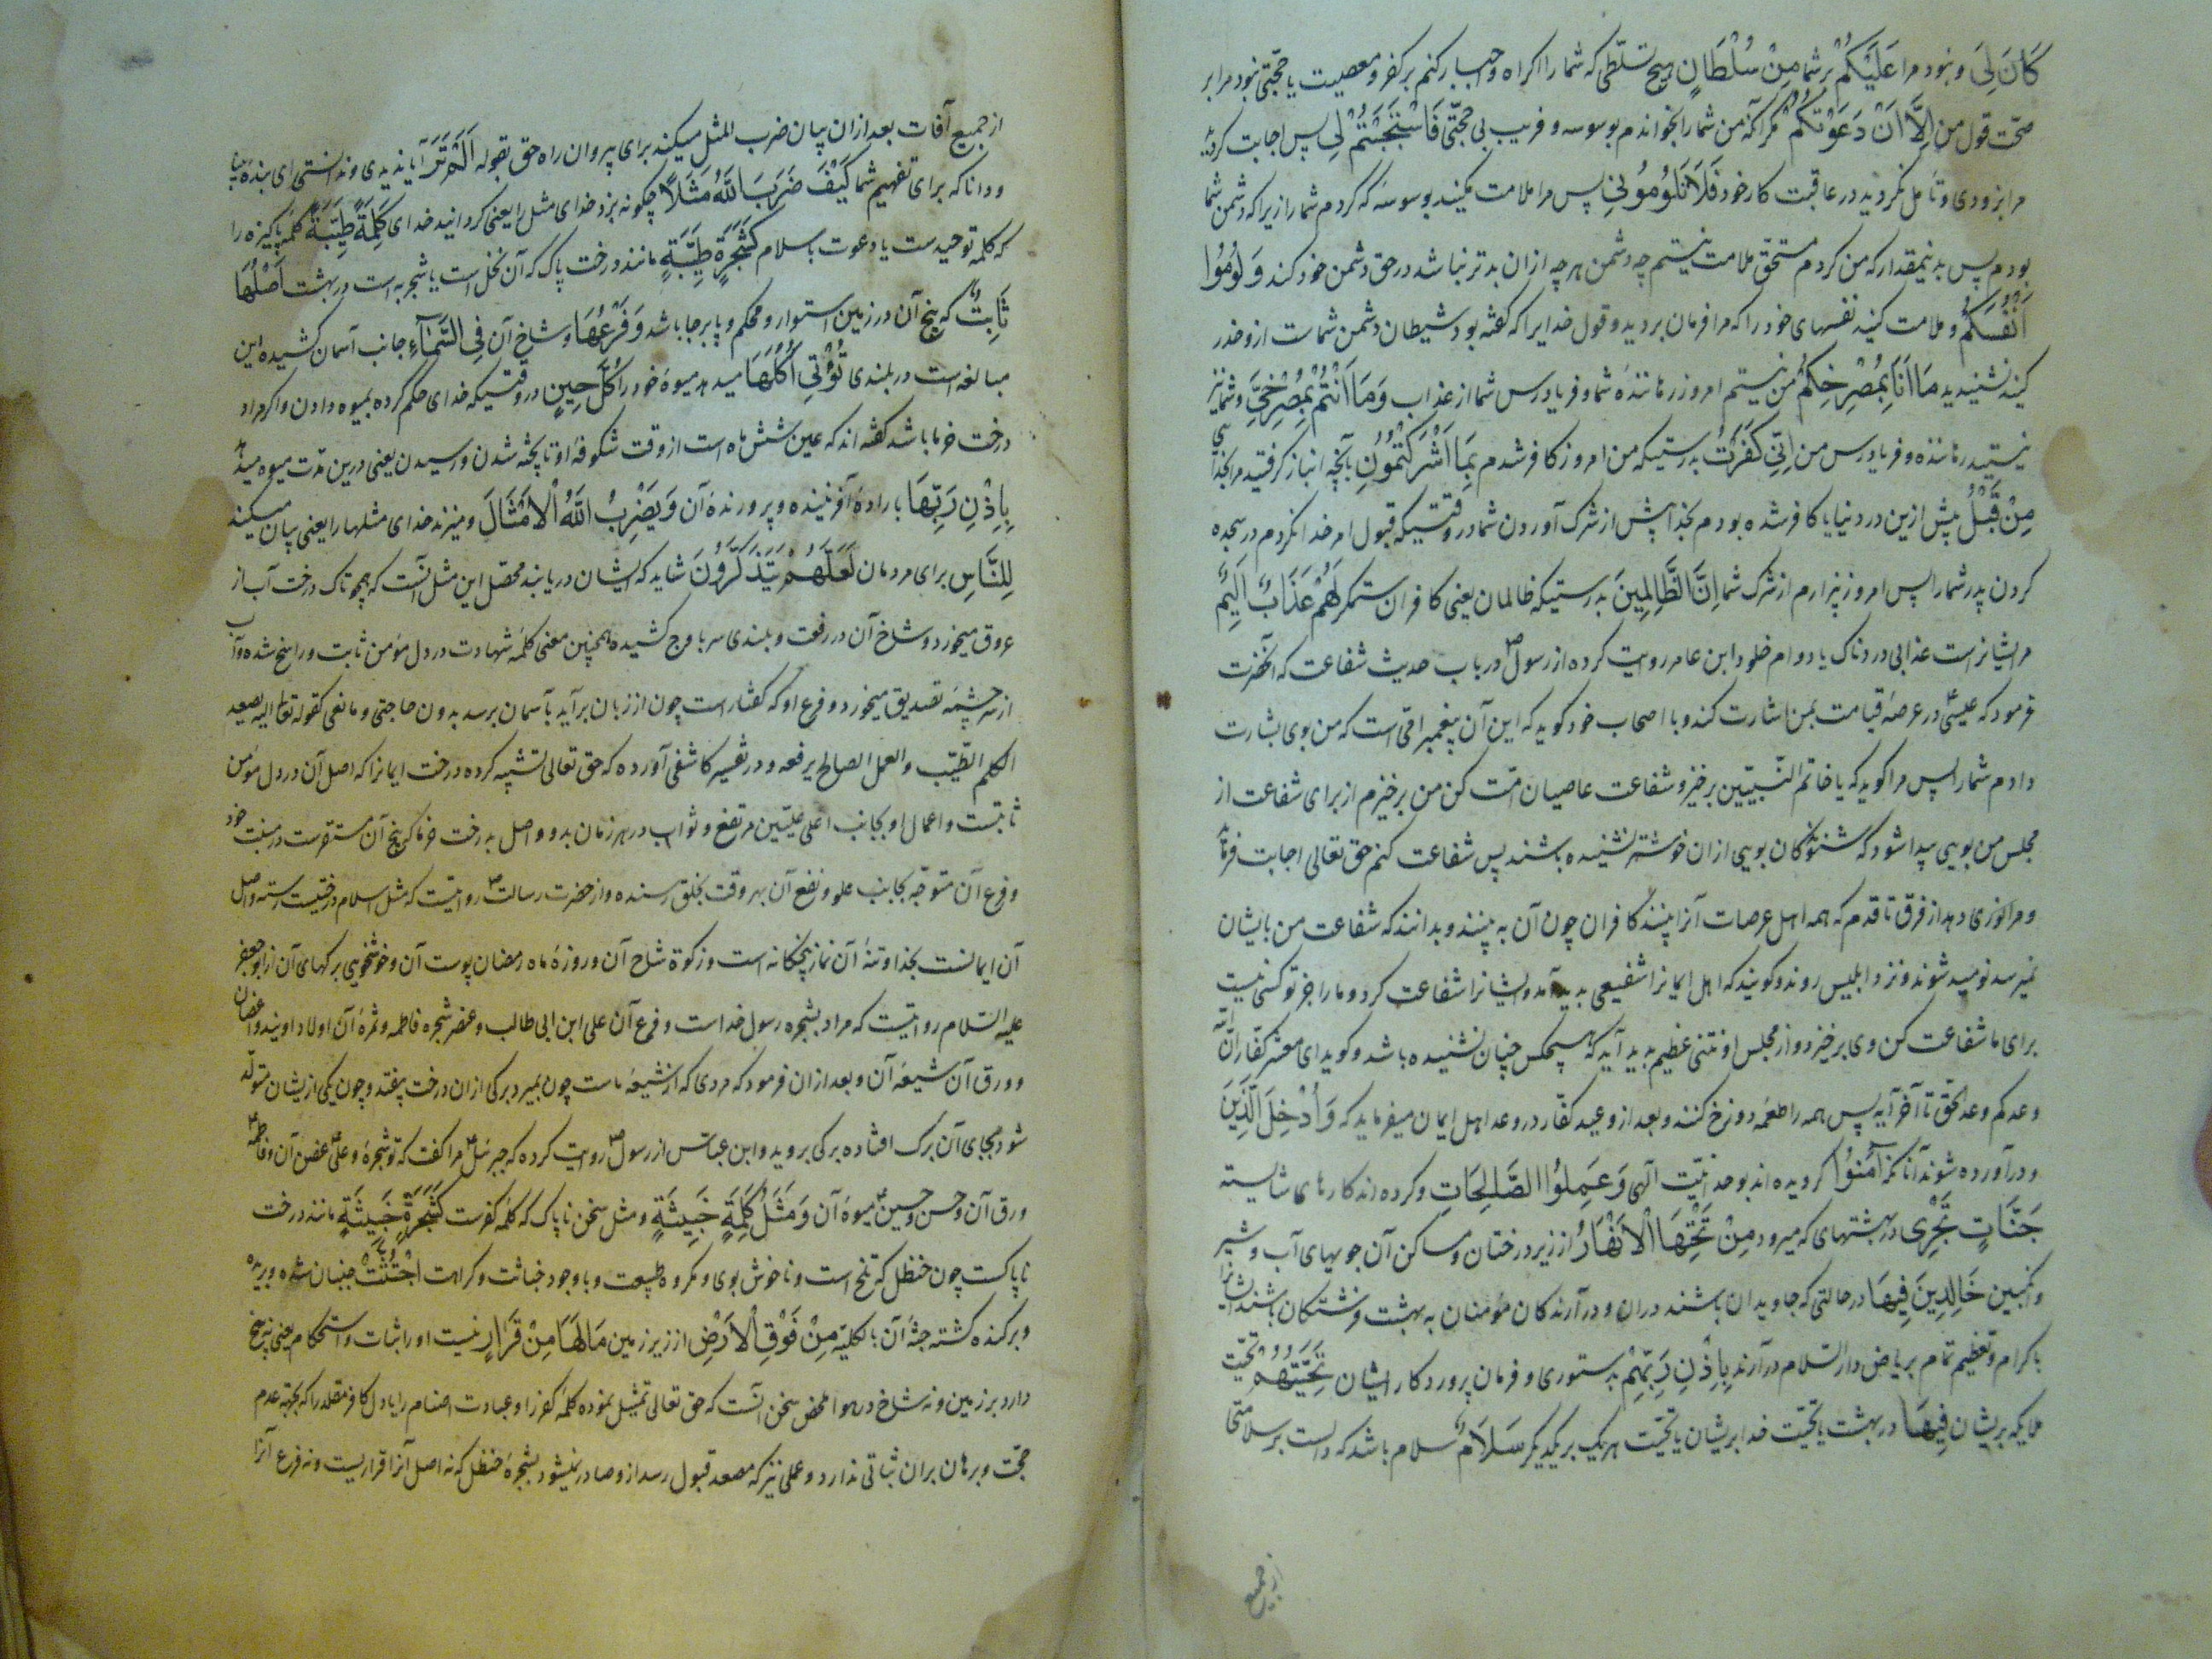 كَانَ لِيَ و نبود مرا عَلَيْكُمْ بر شما مِنْ سُلْطَانٍ هیچ تسلطی که شما را اکراه و اجبار کنم بر کفر و معصیت یا حجتی نبود مرا بر
صحّت قول من اِلَّا اَنْ دَعَوْتُكُمْ مکر آنکه من شما را بخواندم بوسوسه و فریب بی حجّتی فَاسْتَجَبْتُمْ لِي پس اجابت کردید
مرا بزودی و تأمل نکردید در عاقبت کار خود فَلَا تَلُومُونِي پس مرا ملامت مکنید بوسوسه که کردم شما را زیرا که دشمن شما
بودم پس بدینمقدار که من کردم مستحق ملامت نیستم چه دشمن هر چه ازان بدتر نباشد در حق دشمن خود کند وَلُومُوا
اَنْفُسَكُمْ و ملامت کنید نفسهای خود را که مرا فرمان بردید و قول خدایرا که گفته بود شیطان دشمن شماست ازو حذر
کنید نشنیدید مَا اَنَا بِمُصْرِخِكُمْ من نیستم امروز رهاننده شما و فریادرس شما از عذاب وَمَا اَنْتُمْ بِمُصْرِخِيَّ و شما نیز
نیستید رهاننده و فریادرس من اِنِّي كَفَرْتُ بدرستیکه من امروز کافر شدم بِمَا اَشْرَكْتُمُونِ بآنچه انباز کرفتید مرا بخدا
مِنْ قَبْلُ پیش ازین در دنیا یا کافر شده بودم بخدا پیش از شرک آوردن شما در وقتیکه قبول امر خدا نکردم در سجده
کردن پدر شما را پس امروز بیزارم از شرک شما اِنَّ الظَّالِمِينَ بدرستیکه ظالمان یعنی کافران ستمکر لَهُمْ عَذَابٌ اَلِيمٌ
مر ایشانراست عذابی دردناک یا دوام خلود ابن عامر روایت کرده از رسول ص در باب حدیث شفاعت که آنحضرت
فرمود که عیسی ع در عرصهٔ قیامت بمن اشارت کند و با اصحاب خود کوید که این آن پیغمبر امّی است که من بوی بشارت
دادم شما را پس مرا کوید که یا خاتم النّبیّین برخیز و شفاعت عاصیان امّت کن من برخیزم از برای شفاعت از
مجلس من بویی پیدا شود که شنوندکان بویی ازان خوشتر نشنیده باشند پس شفاعت کنم حق تعالی اجابت فرماید
و مرا نوری دهد از فرق تا قدم که همه اهل عرصات آنرا بینند کافران چون آن به بینند و بدانند که شفاعت من بایشان
نمیرسد نومید شوند و نزد ابلیس روند و کویند که اهل ایمانرا شفیعی پدید آمد و ایشانرا شفاعت کرد و ما را جز تو کسی نیست
برای ما شفاعت کن وی برخیزد و از مجلس او نتنی عظیم پدید آید که هیچکس چنان نشنیده باشد و کوید ای معشر کفّار اِنَّ اللّه
وعدکم وعد الحق تا آخر آیه پس همه را طعمه دوزخ کنند و بعد از وعید کفّار در وعد اهل ایمان میفرماید که وَاُدْخِلَ الَّذِينَ
و درآورده شوند آنانکه اٰمَنُوا کرویده اند بوحدانیّت الهی وَعَمِلُوا الصَّالِحَاتِ و کرده اند کارهای شایسته
جَنَّاتٍ تَجْرِي در بهشتهای که میرود مِنْ تَحْتِهَا الْاَنْهَارُ از زیر درختان و مساکن آن جویهای آب و شیر
و انکبین خَالِدِينَ فِيهَا در حالتی که جاویدان باشند دران و درآرندکان مؤمنان به بهشت فرشتکان باشند ایشانرا
باکرام و تعظیم تمام بریاض دار السّلام درآرند بِاِذْنِ رَبِّهِمْ بدستوری و فرمان پروردکار ایشان تَحِيَّتُهُمْ تحیّت
ملایکه بریشان فِيهَا در بهشت یا تحیّت خدا بریشان یا تحیّت هر یک بر یکدیکر سَلَامٌ سلام باشد که دالست بر سلامتی
از جمیع
از جمیع آفات بعد ازان بیان ضرب المثل میکند برای پیروان راه حق بقوله اَلَمْ تَرَ آیا ندیدی و ندانستی ای بنده بینا
و دانا که برای تفهیم شما كَيْفَ ضَرَبَ اللّٰهُ مَثَلًا چکونه بزد خدای مثل را یعنی کردانید خدای كَلِمَةً طَيِّبَةً کلمهٔ پاکیزه را
که کلمهٔ توحیدست یا دعوت باسلام كَشَجَرَةٍ طَيِّبَةٍ مانند درخت پاک که آن نخل است یا شجریه است در بهشت اَصْلُهَا
ثَابِتٌ که بیخ آن در زمین استوار و محکم و پا برجا باشد وَفَرْعُهَا و شاخ آن فِي السَّمَاءِ جانب آسمان کشیده این
مبالغه است در بلندی تُؤْتِي اُكُلَهَا میدهد میوهٔ خود را كُلَّ حِينٍ در وقتیکه خدای حکم کرده بمیوه دادن و اکر مراد
درخت خرما باشد کفته اند که عین شش ماه است از وقت شکوفهٔ او تا پخته شدن و رسیدن یعنی درین مدّت میوه میدهد
بِاِذْنِ رَبِّهَا بارادهٔ آفریننده و پرورنده آن وَيَضْرِبُ اللّٰهُ الْاَمْثَالَ و میزند خدای مثلها را یعنی بیان میکند
لِلنَّاسِ برای مردمان لَعَلَّهُمْ يَتَذَكَّرُونَ شاید که ایشان دریابند محصّل این مثل آنست که همچنانک درخت آب از
عروق میخورد و شاخ آن در رفعت و بلندی سر باوج کشیده همچنین معنی کلمهٔ شهادت در دل مؤمن ثابت و راسخ شده و آب
از سرچشمهٔ تصدیق میخورد و فرع او که کفتار است چون از زبان برآید بآسمان برسد بدون حاجتی و مانعی کقوله تعالی الیه یصعد
الکلم الطّیّب و العمل الصالح یرفعه و در تفسیر کاشفی آورده که حق تعالی تشبیه کرده درخت ایمانرا که اصل آن در دل مؤمن
ثابتست و اعمال او بجانب اعلی علیّین مرتفع و ثواب در هر زمان بدو واصل بدرخت خرما که بیخ آن مستقرست در منبت خود
و فرع آن متوجّه بجانب علو و نفع آن بهر وقت بخلق رسنده و از حضرت رسالت ص روایتست که مثل اسلام درختیست رسته و اصل
آن ایمانست بخدا و تنهٔ آن نماز پنجکانه است و زکوة شاخ آن و روزهٔ ماه رمضان پوست آن و خوشخویی برکهای آن از ابو جعفر
علیه السّلام روایتست که مراد بشجره رسول خداست و فرع آن علی ابن ابی طالب و عنصر شجره فاطمه و ثمرهٔ آن اولاد اویند و اغصان
و ورق آن شیعهٔ آن و بعد ازان فرمود که مردی که از شیعهٔ ماست چون بمیرد برکی ازان درخت بیفتد و چون یکی ازیشان متولّد
شود بجای آن برک افتاده برکی بروید و ابن عبّاس از رسول ص روایت کرده که جبرئیل ع مرا کفت که تو شجرهٔ و علی ع غصن آن و فاطمه ع
ورق آن و حسن و حسین ع میوهٔ آن وَمَثَلُ كَلِمَةٍ خَبِيثَةٍ و مثل سخن ناپاک که کلمهٔ کفرست كَشَجَرَةٍ خَبِيثَةٍ مانند درخت
ناپاکست چون حنظل که تلخ است و ناخوش بوی و مکروه طبیعت و با وجود خباثت و کراهت اجْتُثَّتْ جنبان شده و بریده
و برکنده کشته جثهٔ آن بالکلیّه مِنْ فَوْقِ الْاَرْضِ از زیر زمین مَا لَهَا مِنْ قَرَارٍ نیست او را ثبات و استحکام یعنی نه بیخ
دارد بر زمین و نه شاخ در هوا ملخّص سخن آنست که حق تعالی تمثیل نموده کلمهٔ کفر را و عبادت اصنام را یا دل کافر مقلّد را که بجهة عدم
حجّت و برهان بران ثباتی ندارد و عملی نیز که مصعد قبول رسد ازو صادر نمیشود بشجرهٔ حنظل که نه اصل آنرا قراریست و نه فرع آنرا